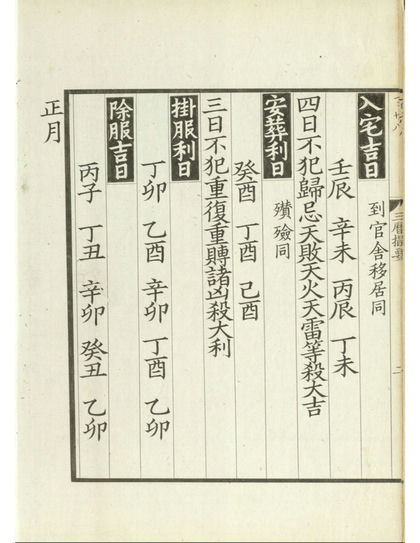 入宅吉日　到官舍移居同
壬辰　辛未　丙辰　丁未
四日不犯歸忌天敗天火天雷等殺大吉
安葬利日　殯殮同
癸酉　丁酉　己酉
三日不犯重復重賻諸凶殺大利
掛服利日
丁卯　乙酉　辛卯　丁酉　乙卯
除服吉日
丙子　丁丑　辛卯　癸丑　乙卯
正月
三曆撮要
二